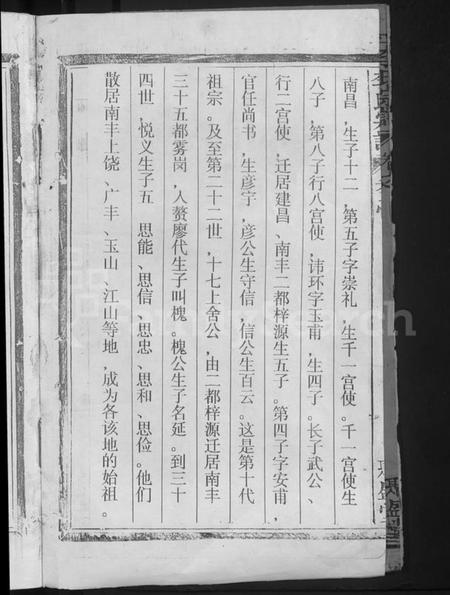 南昌，生子十二，第五子字崇礼，生千一宫使。千一宫使生
八子，第八子行八宫使，讳环字玉甫，生四子。长子武公、
行二宫使，迁居建昌、南丰二都梓源生五子。第四子字安甫，
官任尚书，生彦宇，彦公生守信，信公生百云。这是第十代
祖宗。及至第二十二世，十七上舍公，由二都梓源迁居南丰
三十五都雾岗，入赘廖代生子叫槐。槐公生子名延。到三十
四世，悦义生子五　思能、思信、思忠、思和、思俭。他们
散居南丰上饶、广丰、玉山、江山等地，成为各该地的始祖。